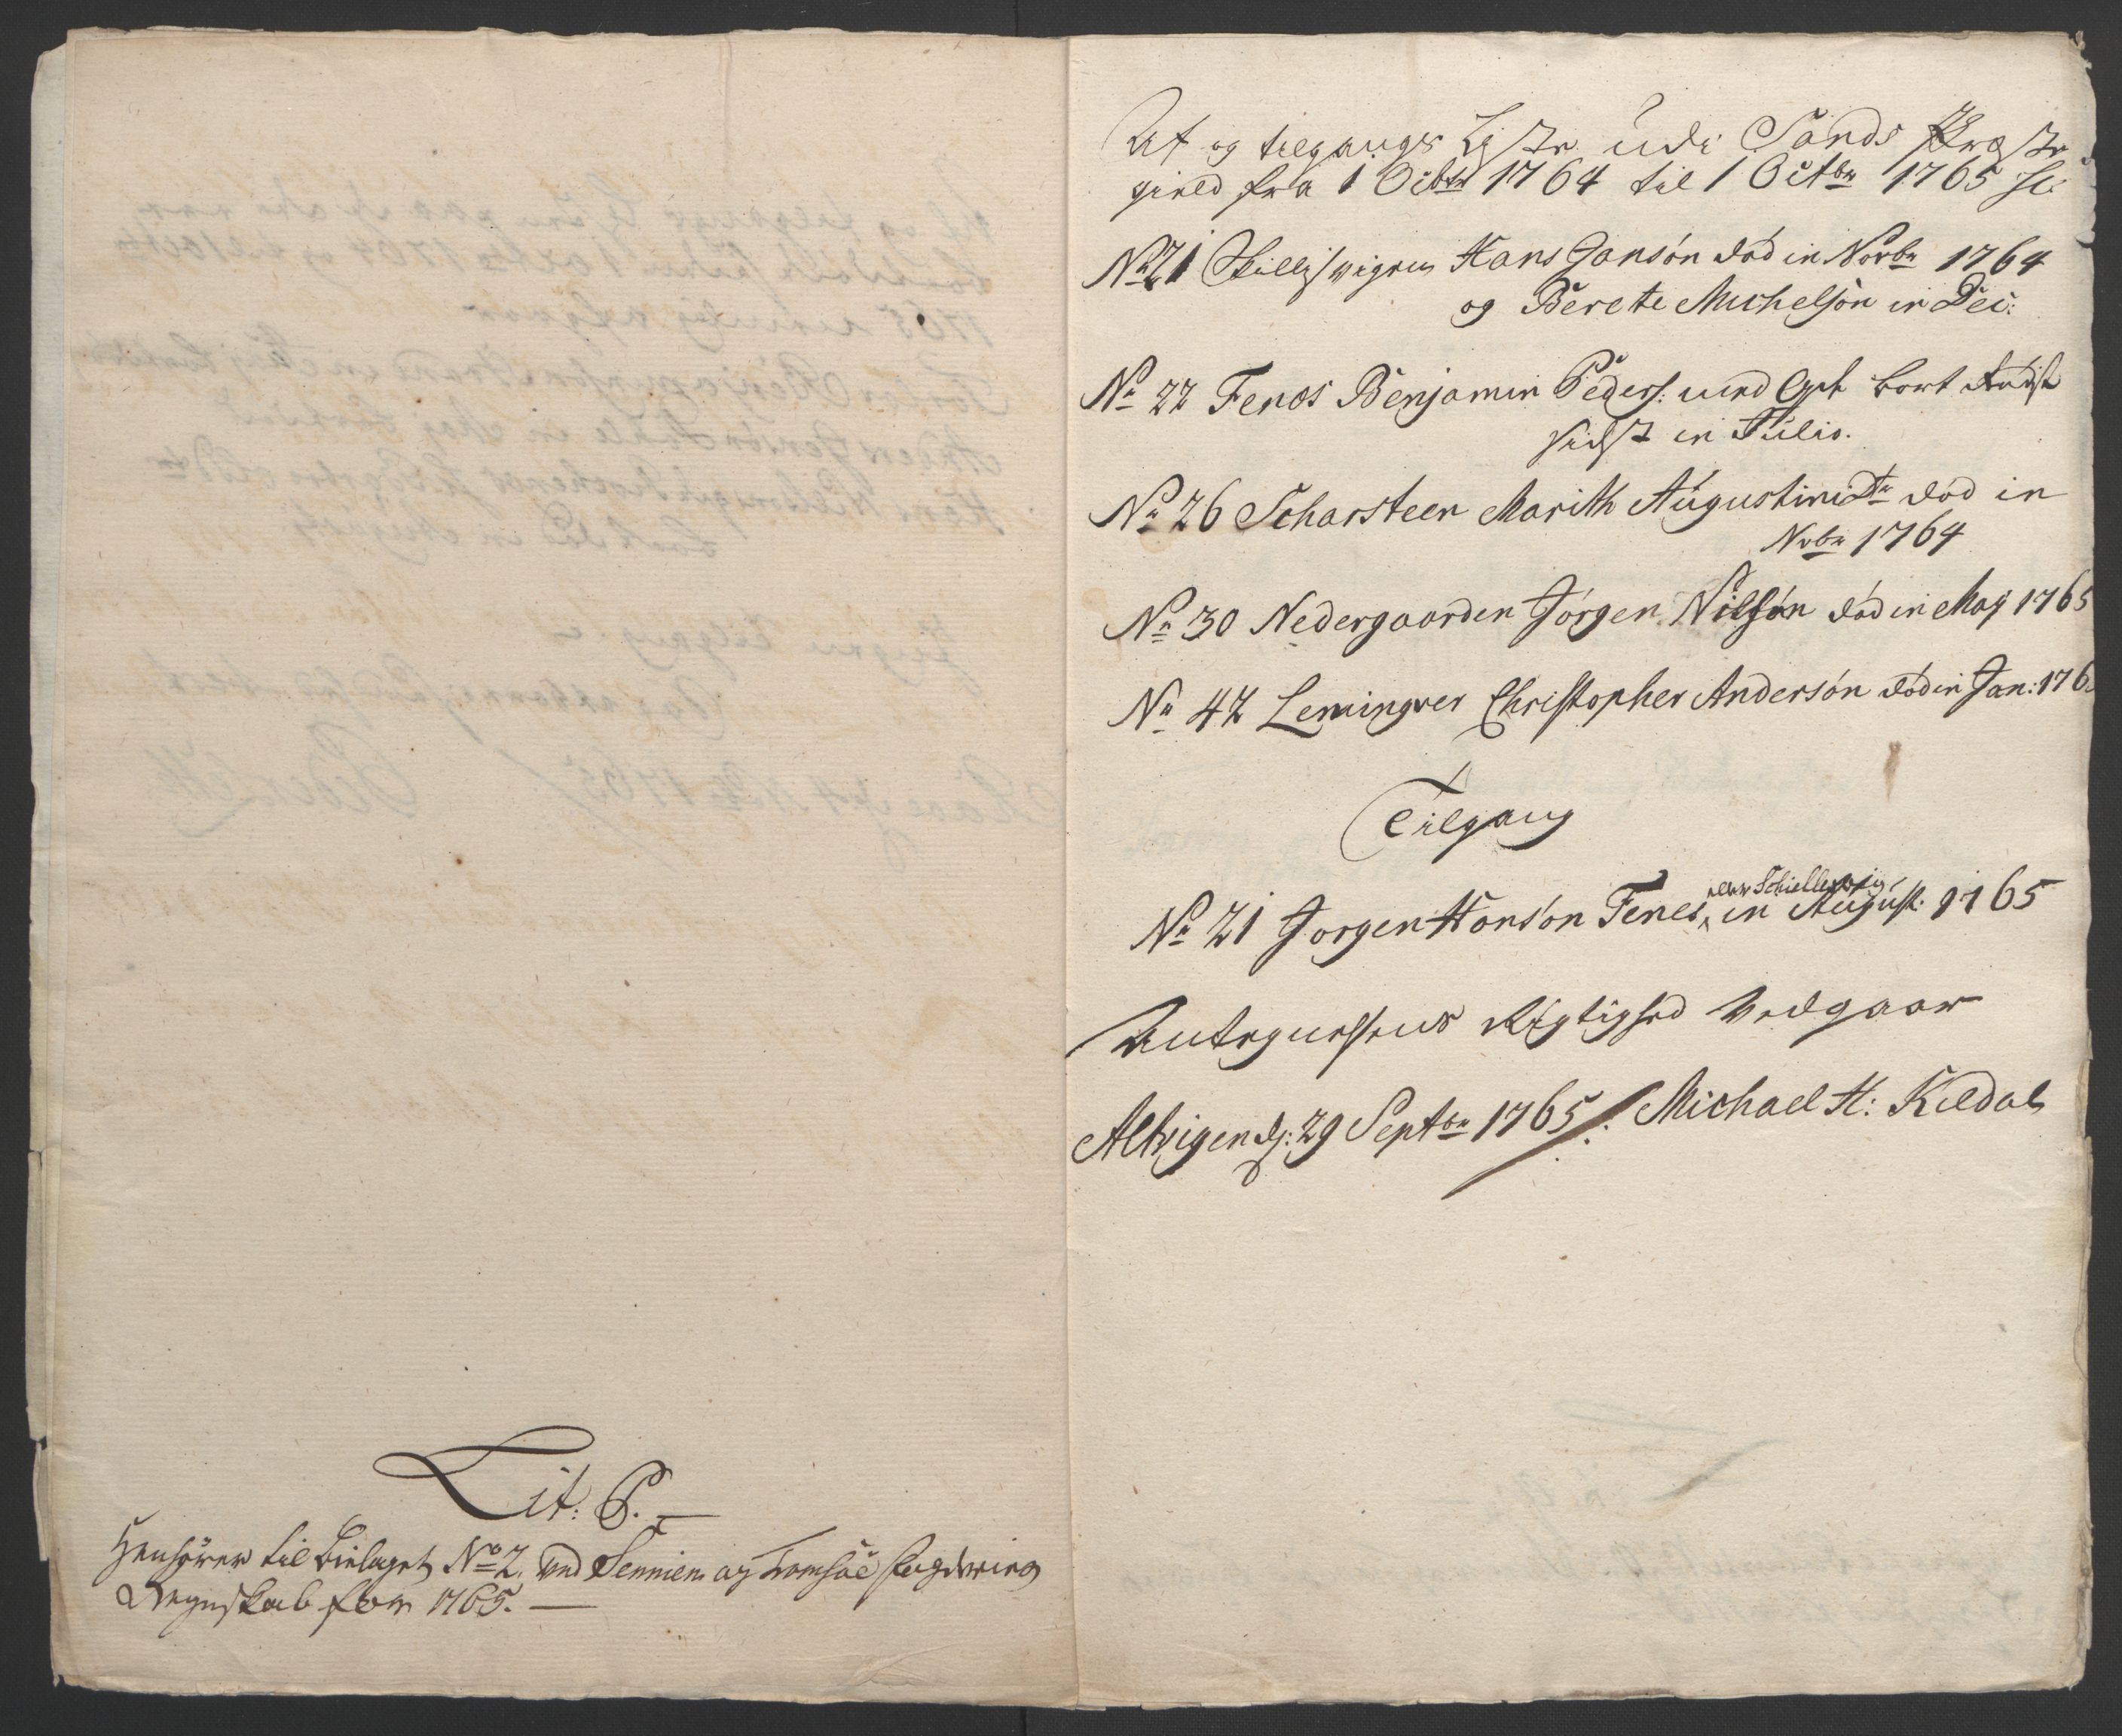 Lit: C.
Henhörer til Bielaget No 2. ved Sennien og Tromsöe fogderies
Regnskab for 1765.
Af og tilgangs Liste udi Sands Præste
gield fra 1 Octbr 1764 til 1 Octbr 1765
Nr 21 Skillisvigen Hans Jansón död in Novbr 1764
og Berete Michelsón in Dec:
Nr 22 Fenes Benjamin Peders: med bort
sidst in Julio.
Nr 26 Scharsteen Marith AugustiniDtr död in
Nvbr 1764
Nr 30 Nedergaarden Jórgen Nilsón död in Maj 1765
Nr 42 Lemingver Christopher Andersón död in Jan: 176
Tilgang
Nr 21 Jorgen Hansón Fenes eller Schiellesvig in August: 1765
Rigtighed vedgaar
Alwigen d: 29 Septbr 1765 /: Michael H: Kildal